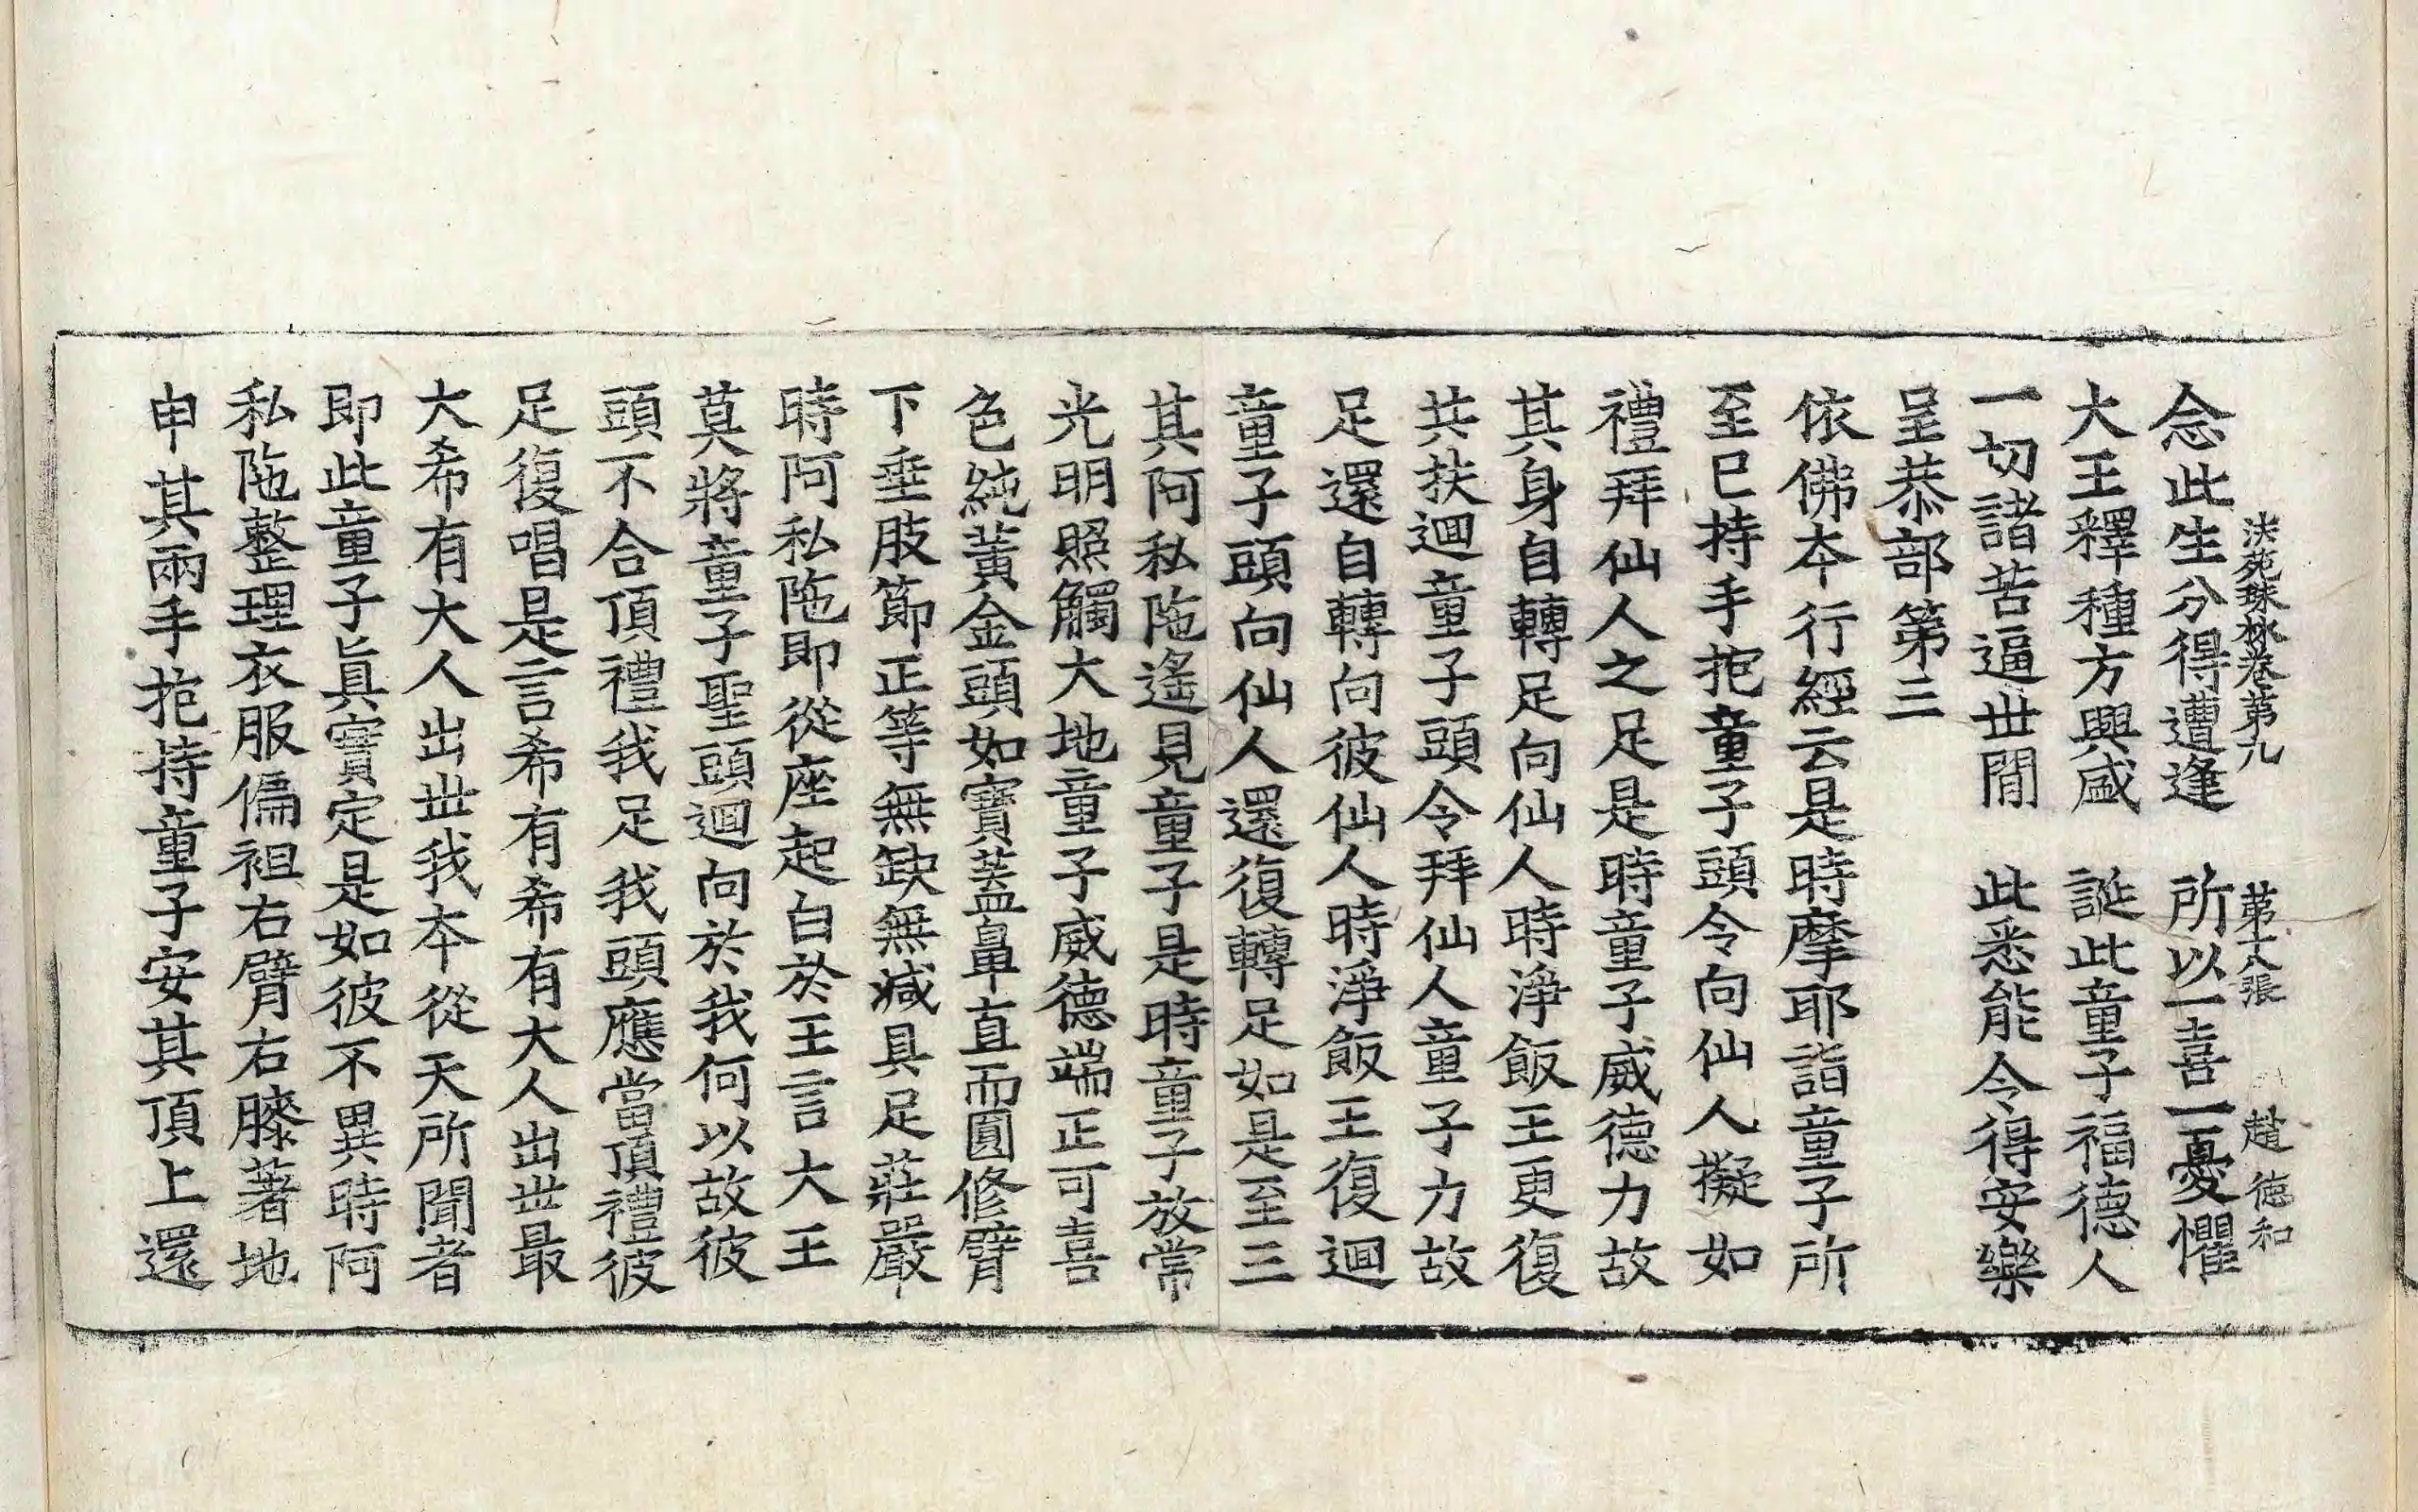 法苑珠林卷第九 第十八張 趙德和
念此生分得遭逢 所以一喜一憂懼
大王釋種方興盛 誕此童子福德人
一切諸苦逼世閒 此悉能令得安樂
呈恭部第三
依佛本行經云是時摩耶詣童子所
至巳持手抱童子頭令向仙人擬如
禮拜仙人之足是時童子威德力故
其身自轉足向仙人時淨飯王更復
共扶迴童子頭令拜仙人童子力故
足還自轉向彼仙人時淨飯王復迴
童子頭向仙人還復轉足如是至三
其阿私陁遙見童子是時童子放常
光明照觸大地童子威德端正可喜
色純黃金頭如寶蓋鼻直而圓修臂
下垂肢節正等無缺無減具足莊嚴
時阿私陁即從座起白於王言大王
莫將童子聖頭迴向於我何以故彼
頭不合頂禮我足我頭應當頂禮彼
足復唱是言希有希有大人出世最
大希有大人出世我本從天所聞者
即此童子眞實定是如彼不異時阿
私陁整理衣服偏袒右臂右膝著地
申其兩手抱持童子安其頂上還